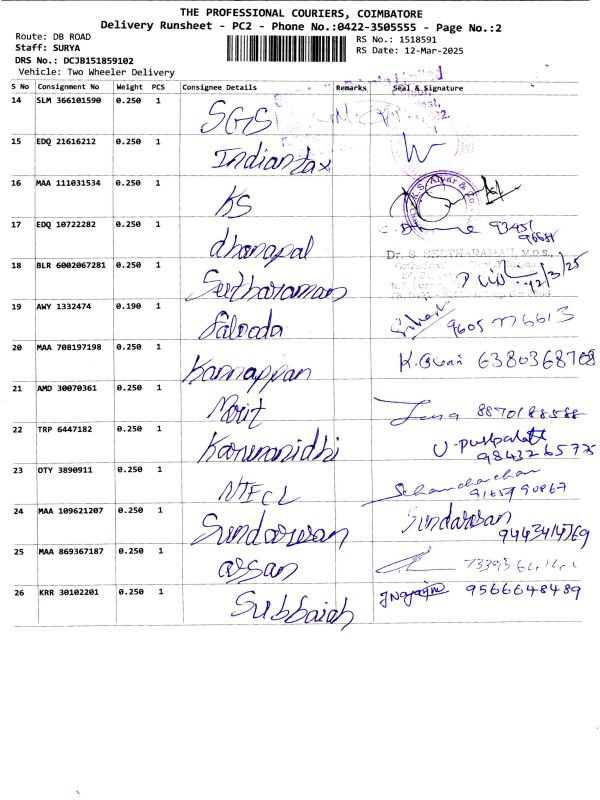 THE PROFESSIONAL COURIERS, COIMBATORE
Delivery Runsheet - PC2 - Phone No.:0422-3505555 - Page No.:2
Route: DB ROAD
RS No.: 1518591
Staff: SURYA
RS Date: 12-Mar-2025
DRS No.: DCJB151859102
Vehicle: Two Wheeler Delivery
S No Consignment No Weight PCS Consignee Details Remarks Seal & Signature
14 SLM 366101590 0.250 1 SGS
15 EDQ 21616212 0.250 1 Indiantax
16 MAA 111031534 0.250 1 KS
17 EDQ 10722282 0.250 1 dhanapal
18 BLR 6002067281 0.250 1 Seetharaman 12/3/25
19 AWY 1332474 0.190 1 9605776613
20 MAA 708197198 0.250 1 Kannappan 6380368708
21 AMD 30070361 0.250 1 8870188588
22 TRP 6447182 0.250 1 Karunanidhi 9843265775
23 OTY 3890911 0.250 1
24 MAA 109621207 0.250 1 Sundaresan Sundaresan
25 MAA 869367187 0.250 1
26 KRR 30102201 0.250 1 Subbaiah 9566648489